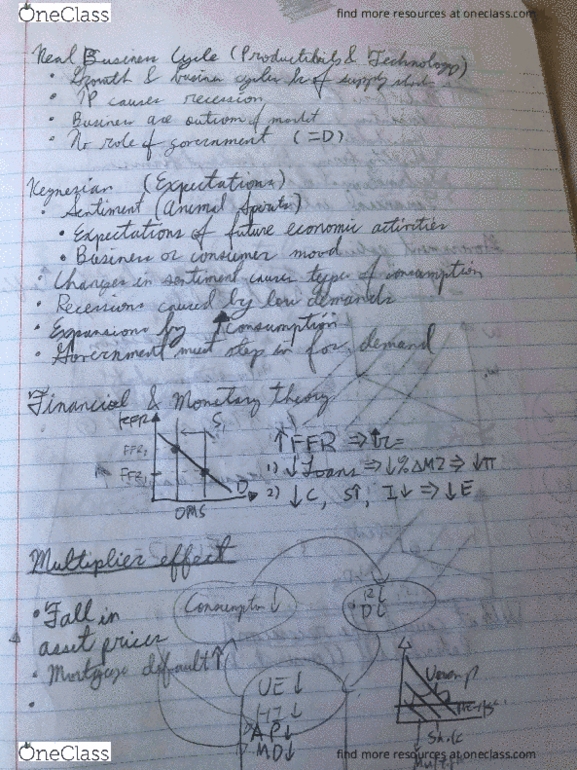 OneClass
find more resources at oneclass.com
Real Business Cycle (Productibity & Technology)
• Growth & busines cycles bc of supply shock
• ↑P causes recession
• Business are outcom of market
• No role of government (=D)
Keynesian (Expectations)
• Sentiment (Animal Spirits)
• Expectations of future economic activities
• Business or consumer mood
• Changes in sentiment causes types of consumption
• Recessions caused by low demands
• Expansions by ↑consumption
• Government must step in for demand
Financial & Monetary theory
FFR
S,
FFR
FFR
D
OMS
↑FFR ⇒ ↑r
1) ↓Loans ⇒ ↓%ΔM2 ⇒ ↓π
2) ↓C, S↑, I↓ ⇒ ↓E
Multiplier effect
Consumption ↓
D↓
• Fall in
asset prices
• Mortgage default ↑
•
UE↓
AP↓
MD↓
OneClass
find more resources at oneclass.com